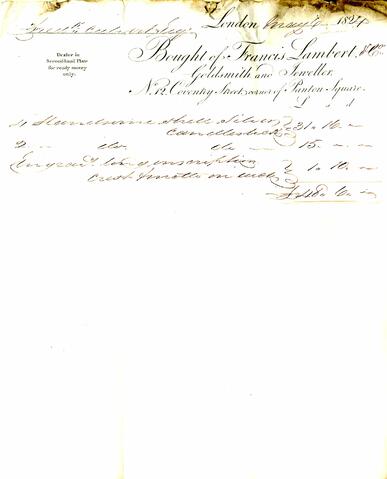 London May 1824
Fredk Esqr
Dealer in
Second-hand Plate
for ready money
only.
Bought of Francis Lambert, & Co.
Goldsmith and Jeweller,
No. 12, Coventry Street, corner of Panton Square.
4 Handsome Silver
Candlesticks 31 - 16 -
2 - do do - 15 - -
Engravg long inscription
Crest & motto on each 1 - 10 -
£48 - 6 -